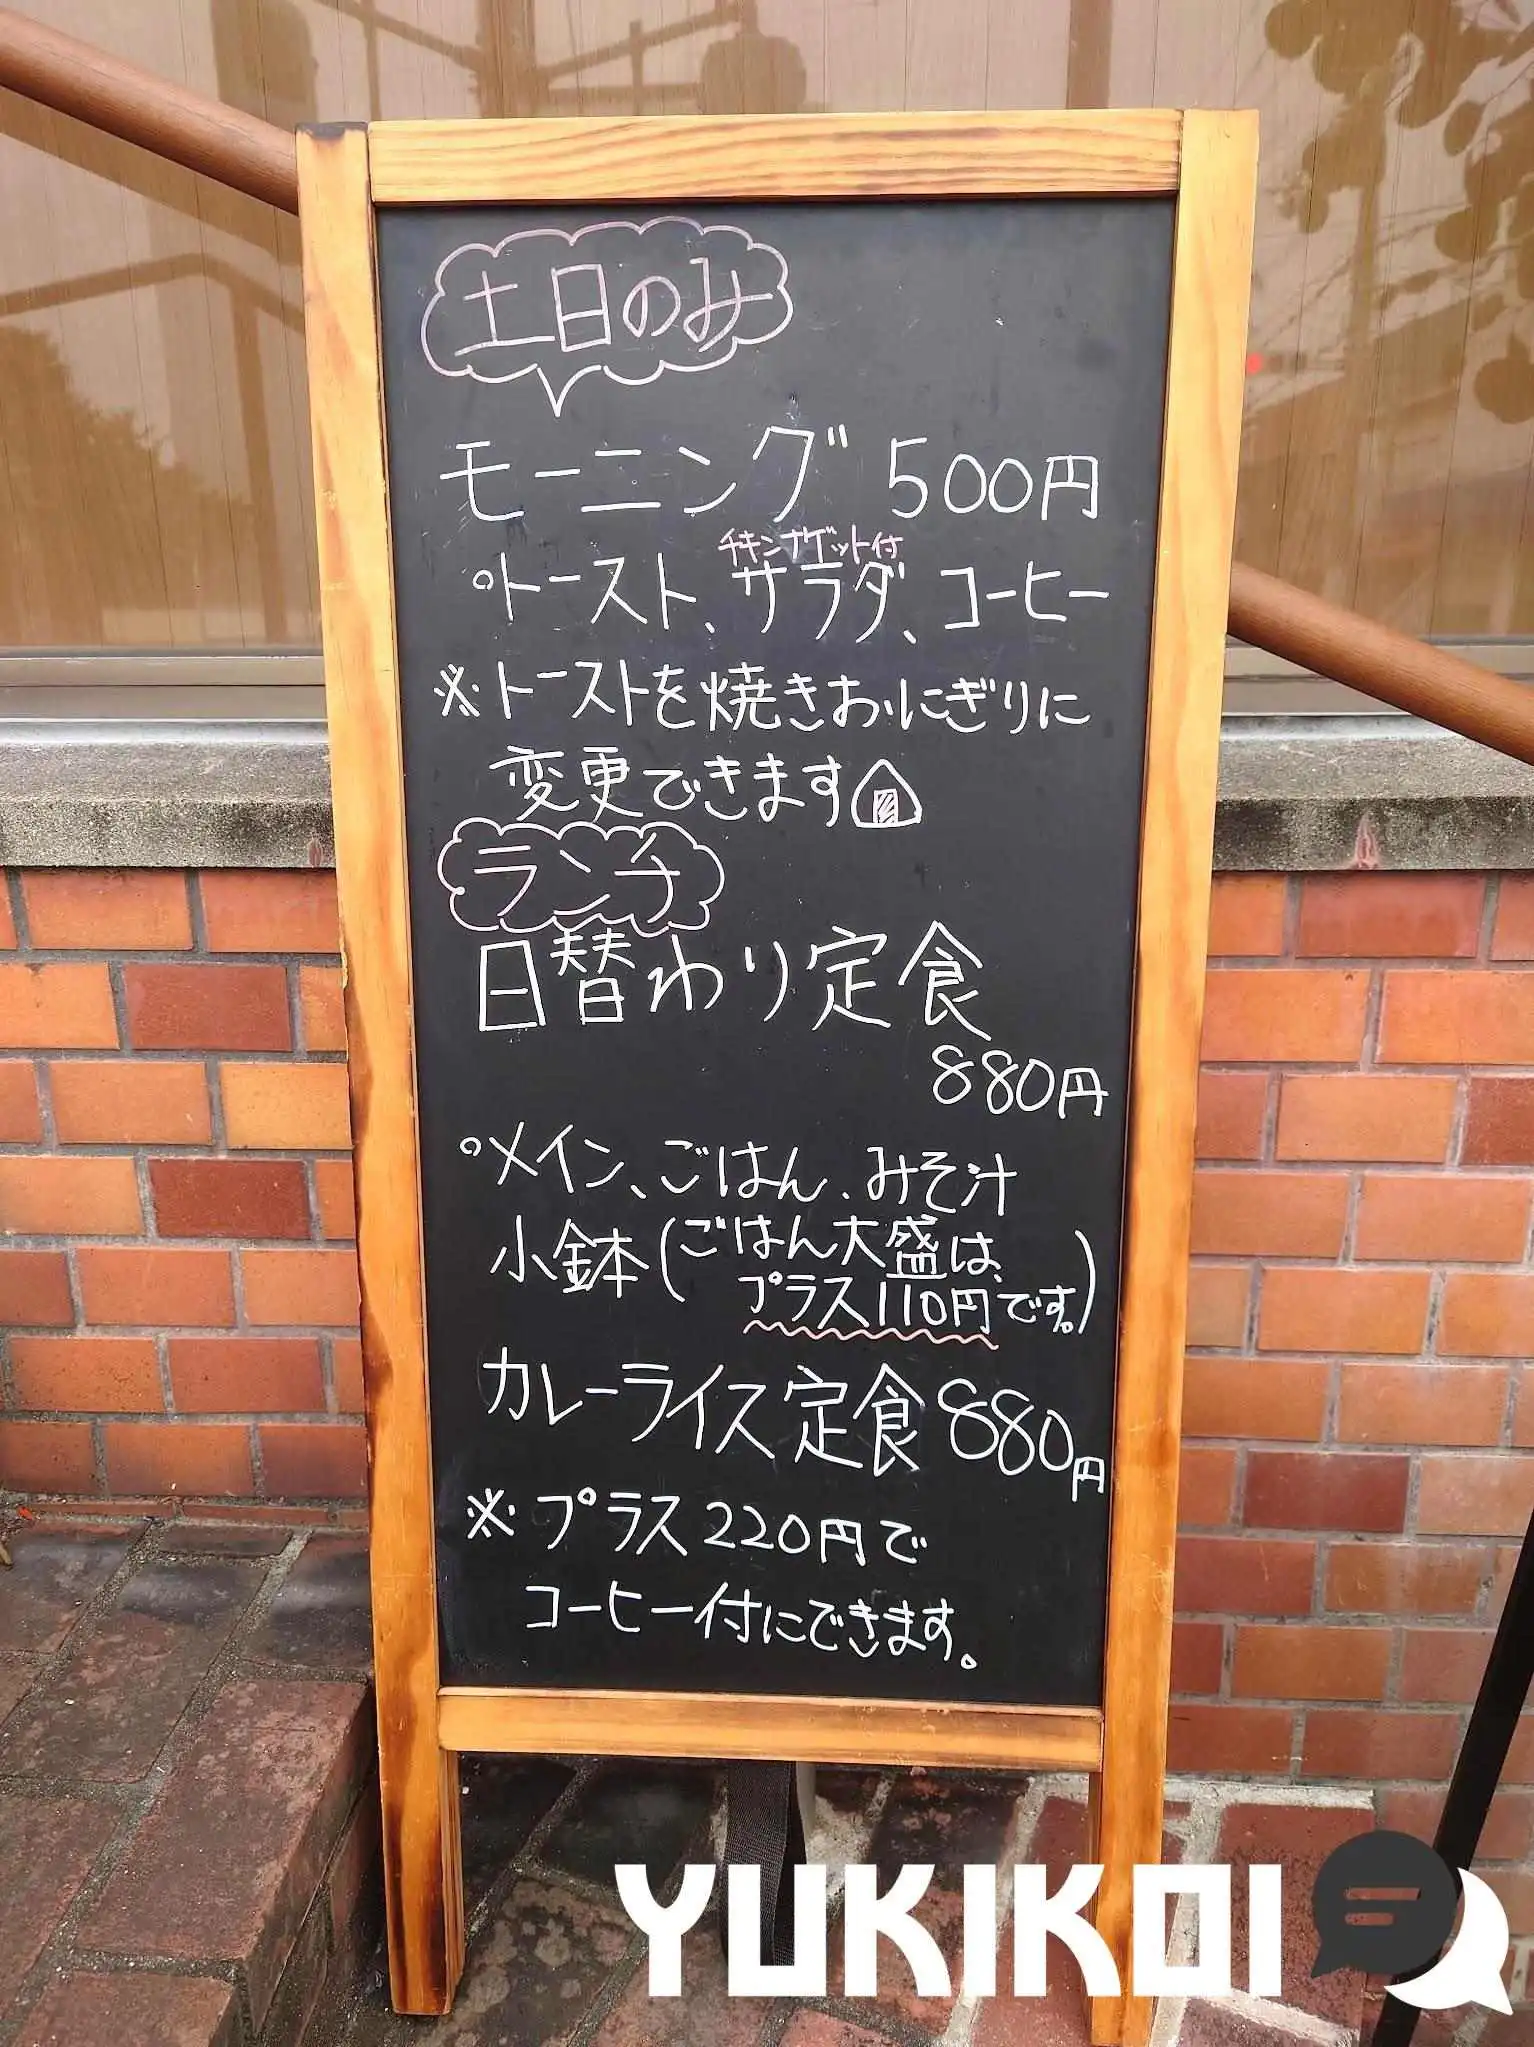 土日のみ
モーニング 500円
チキンナゲット付
°トースト、サラダ、コーヒー
※トーストを焼きおにぎりに
変更できます
ランチ
日替わり定食
880円
°メイン、ごはん、みそ汁
小鉢(ごはん大盛は、
プラス110円です。)
カレーライス定食880円
※プラス220円で
コーヒー付にできます。
YUKIKOI